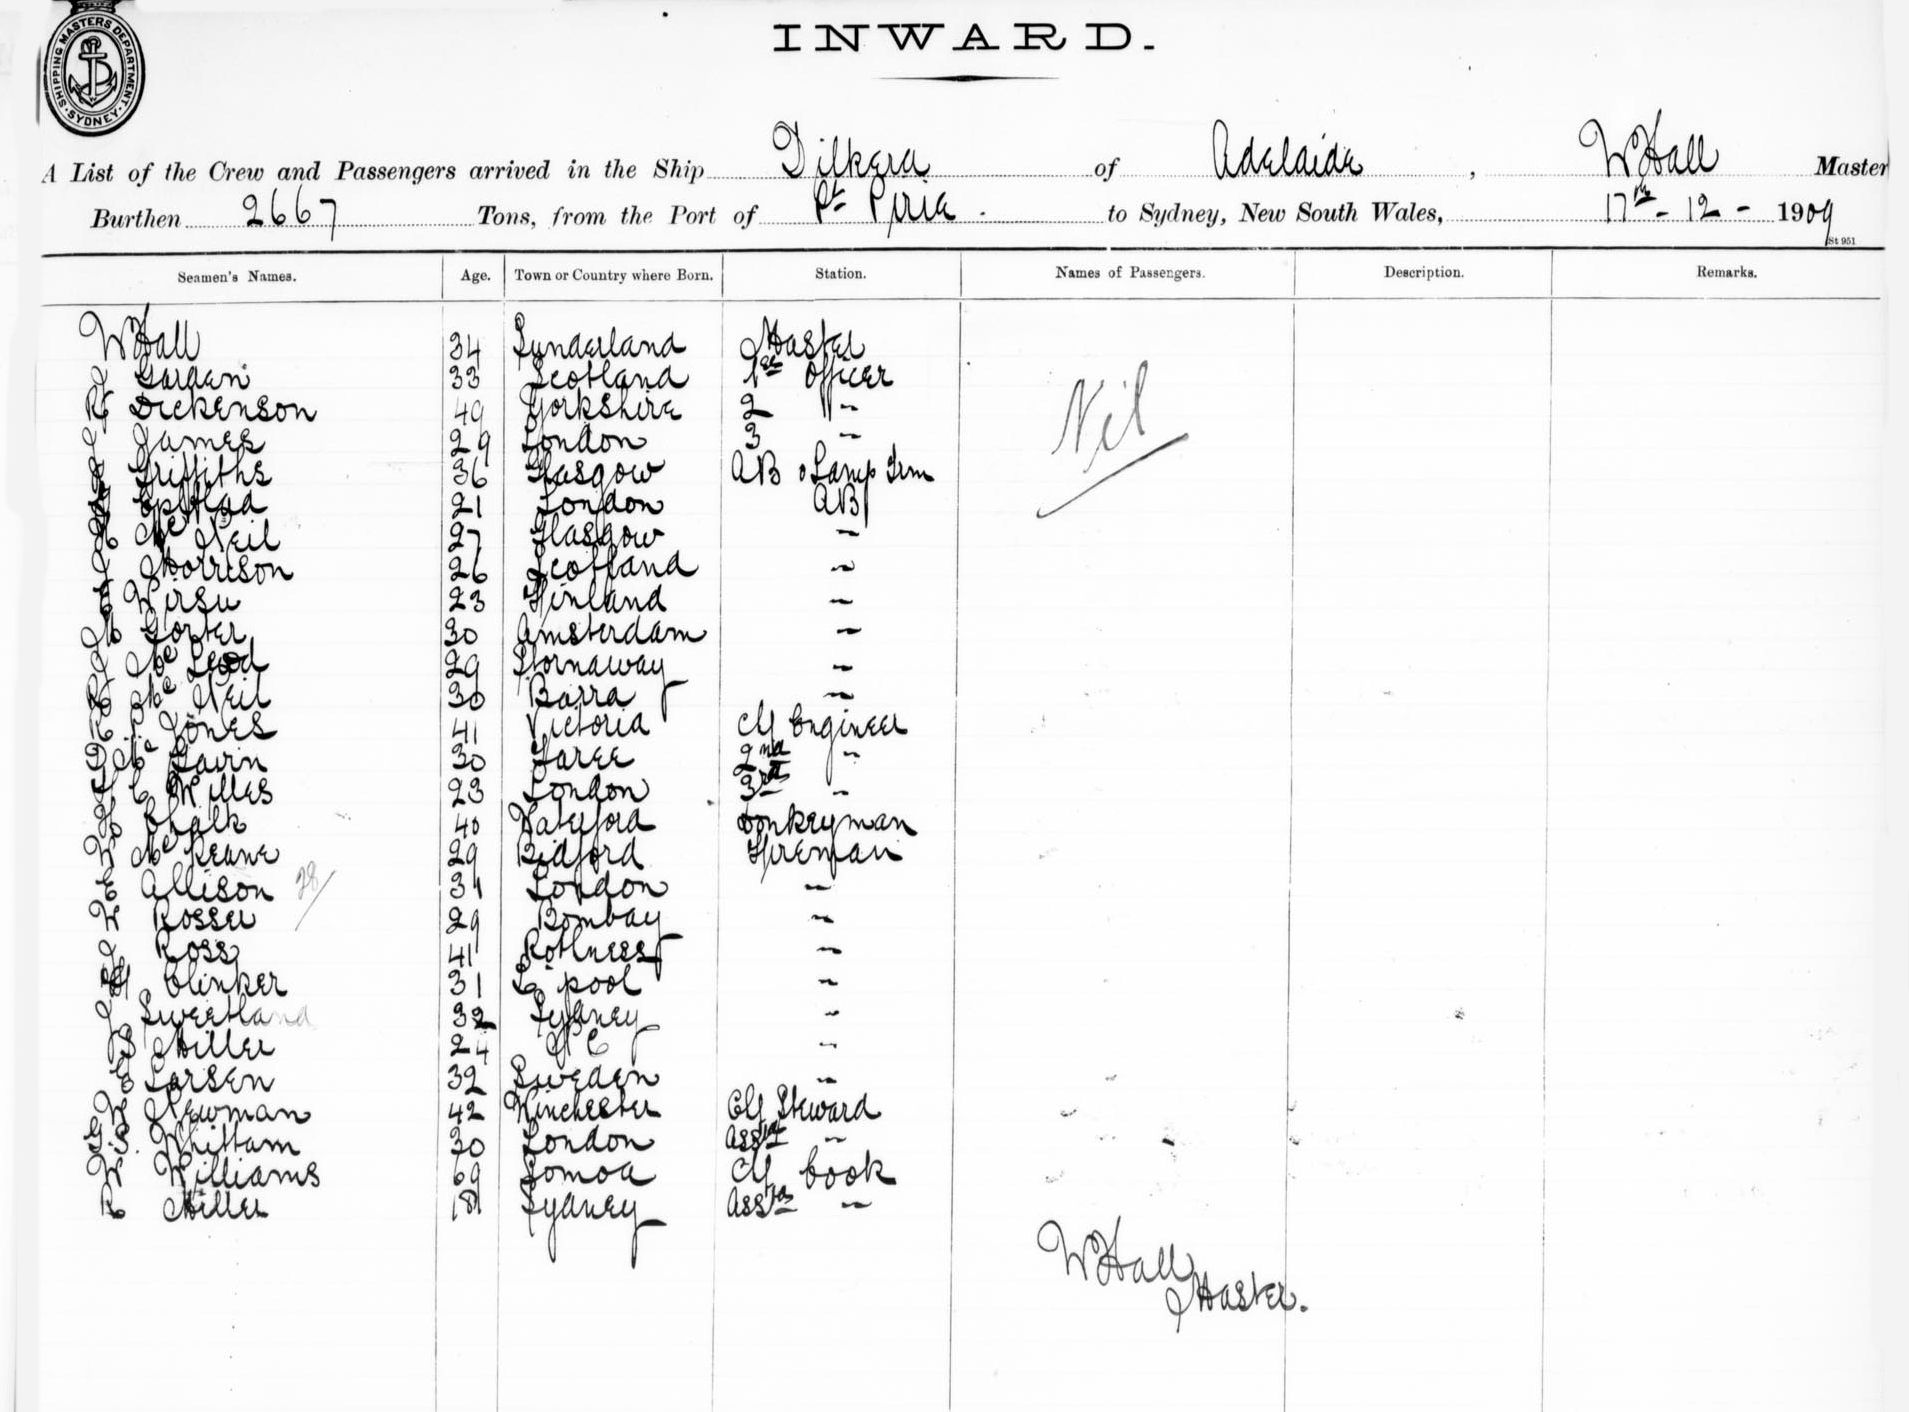 SHIPPING MASTERS DEPARTMENT. SYDNEY.
INWARD.
A List of the Crew and Passengers arrived in the Ship Dilkera of Adelaide, W Hall Master
Burthen 2667 Tons, from the Port of Pt Pirie. to Sydney, New South Wales, 17th - 12 - 1909
St 951
Seamen's Names. Age. Town or Country where Born. Station. Names of Passengers. Description. Remarks.
W Hall 34 Sunderland Master
J Garden 33 Scotland 1st Officer
R Dickenson 49 Yorkshire 2 " -
J James 29 London 3 -
Griffiths 36 Glasgow AB & Lamp Trm
Nil
21 London AB
Mc Neil 27 Glasgow -
J Morrison 26 Scotland -
E Wirsu 23 Finland -
M Gorter 30 Amsterdam -
J Mc Leod 29 Stornaway -
R Mc Neil 30 Barra -
R P Jones 41 Victoria Cf Engineer
D Mc Gavin 30 Taree 2nd " -
H C Willes 23 London 3rd -
H Chalk 40 Wateford Donkeyman
W Mc Keane 29 Bedford Fireman
E Allison 28/ 34 London -
W Rosser 29 Bombay -
J Ross 41 Rothness -
H Clinker 31 L'pool -
J Sweetland 32 Sydney -
B Miller 24 N C -
E Larsen 32 Sweden -
W Newman 42 Winchester Cf Steward
G S Whittam 30 London Asst -
W Williams 69 Somoa Cf Cook
R Miller 18 Sydney Asst -
W Hall
Master.